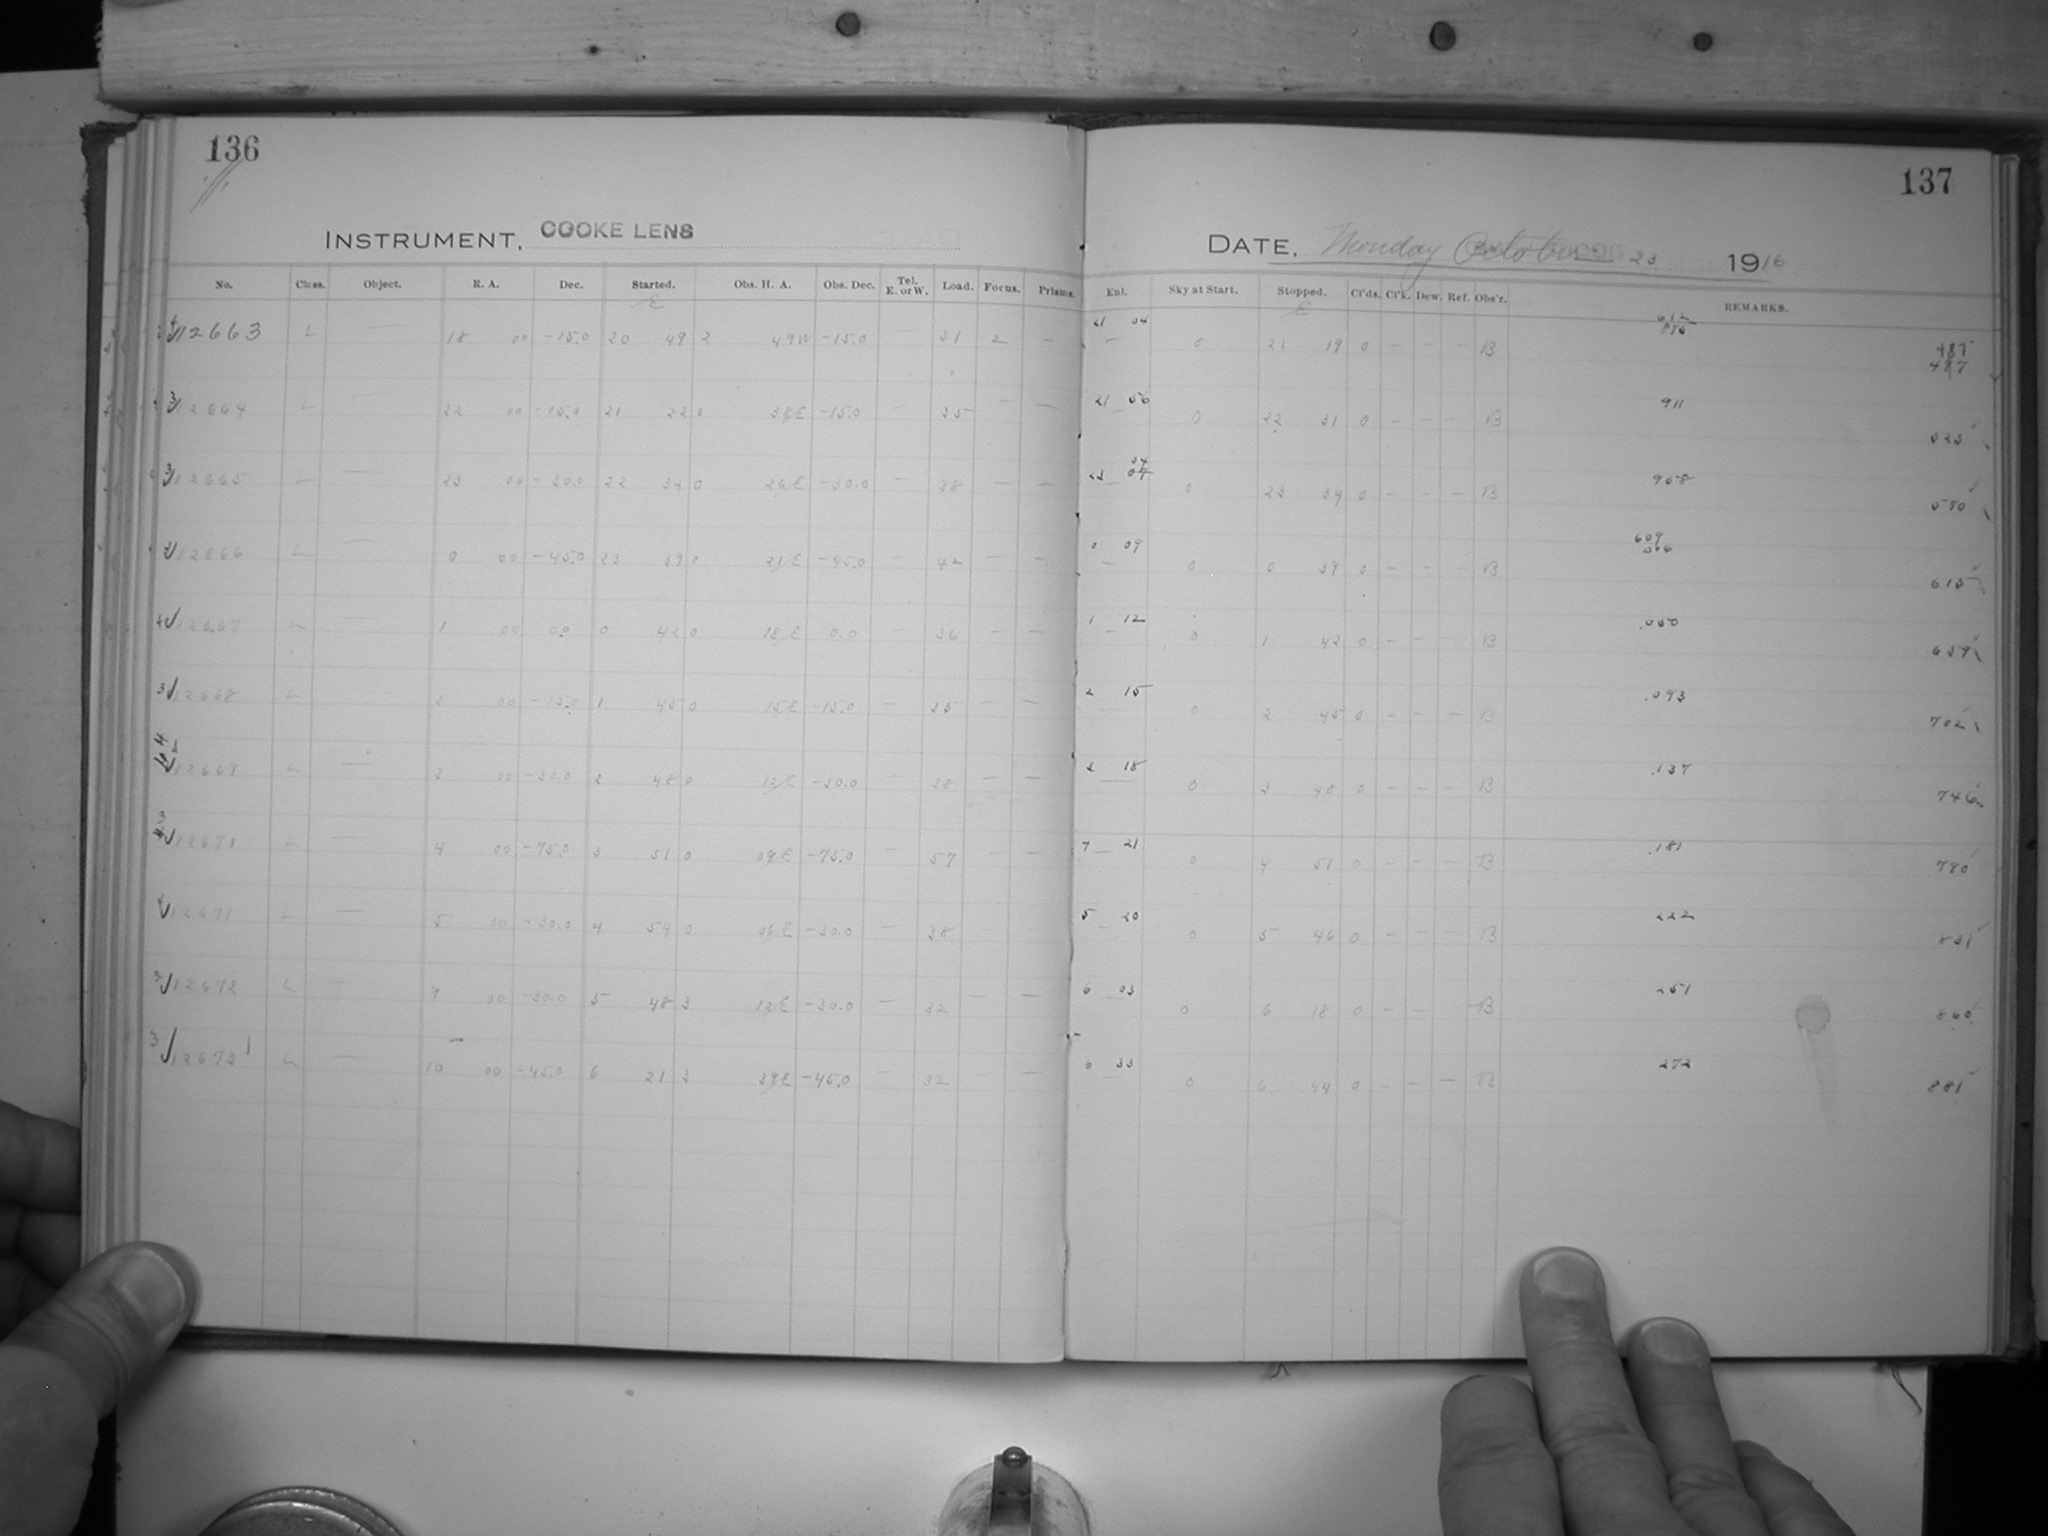 136
137
INSTRUMENT, COOKE LENS
DATE, Monday October 23 1916
No. Class. Object. R. A. Dec. Started. Obs. H. A. Obs. Dec. Tel. E. or W. Load. Focus. Prisms. Enl. Sky at Start. Stopped. Cl'ds. Cl'k. Dew. Ref. Obs'r. REMARKS.
E E
21 04 612
12663 L 18 00 -15.0 20 49 2 49W -15.0 31 2 — — 0 21 19 0 - - - B 487
497
21 56 911
12664 L — 22 00 -15.0 21 22 0 38E -15.0 — 35 — — 0 22 31 0 - - - B 523
34
12665 L — 23 00 -30.0 22 34 0 26E -30.0 — 38 — — 23 04 0 23 34 0 - - - B 958 580
0 09 609
12666 L — 0 00 -45.0 23 39 0 21E -45.0 — 42 — — 0 0 39 0 - - - B 615
1 12 .050
12667 L 1 00 0.0 0 42 0 18E 0.0 — 36 — — 0 1 42 0 - - - B 659
2 15 .093
12668 L 2 00 -15.0 1 45 0 15E -15.0 — 35 — — 0 2 45 0 - - - B 702
2 18 .137
12669 L — 3 00 -30.0 2 48 0 12E -30.0 — 38 — — 0 3 48 0 - - - B 746
7 21 .181
12670 L — 4 00 -75.0 3 51 0 09E -75.0 — 57 — — 0 4 51 0 - - - B 790
5 20 222
12671 L — 5 00 -30.0 4 54 0 06E -30.0 — 38 — 0 5 46 0 - - - B 831
6 03 251
12672 L 9 00 -30.0 5 48 3 12E -30.0 — 32 — — 0 6 18 0 - - - B 860
6 33 272
12673 L — 10 00 -45.0 6 21 3 39E -45.0 — 32 — — 0 6 44 0 - - - B 881